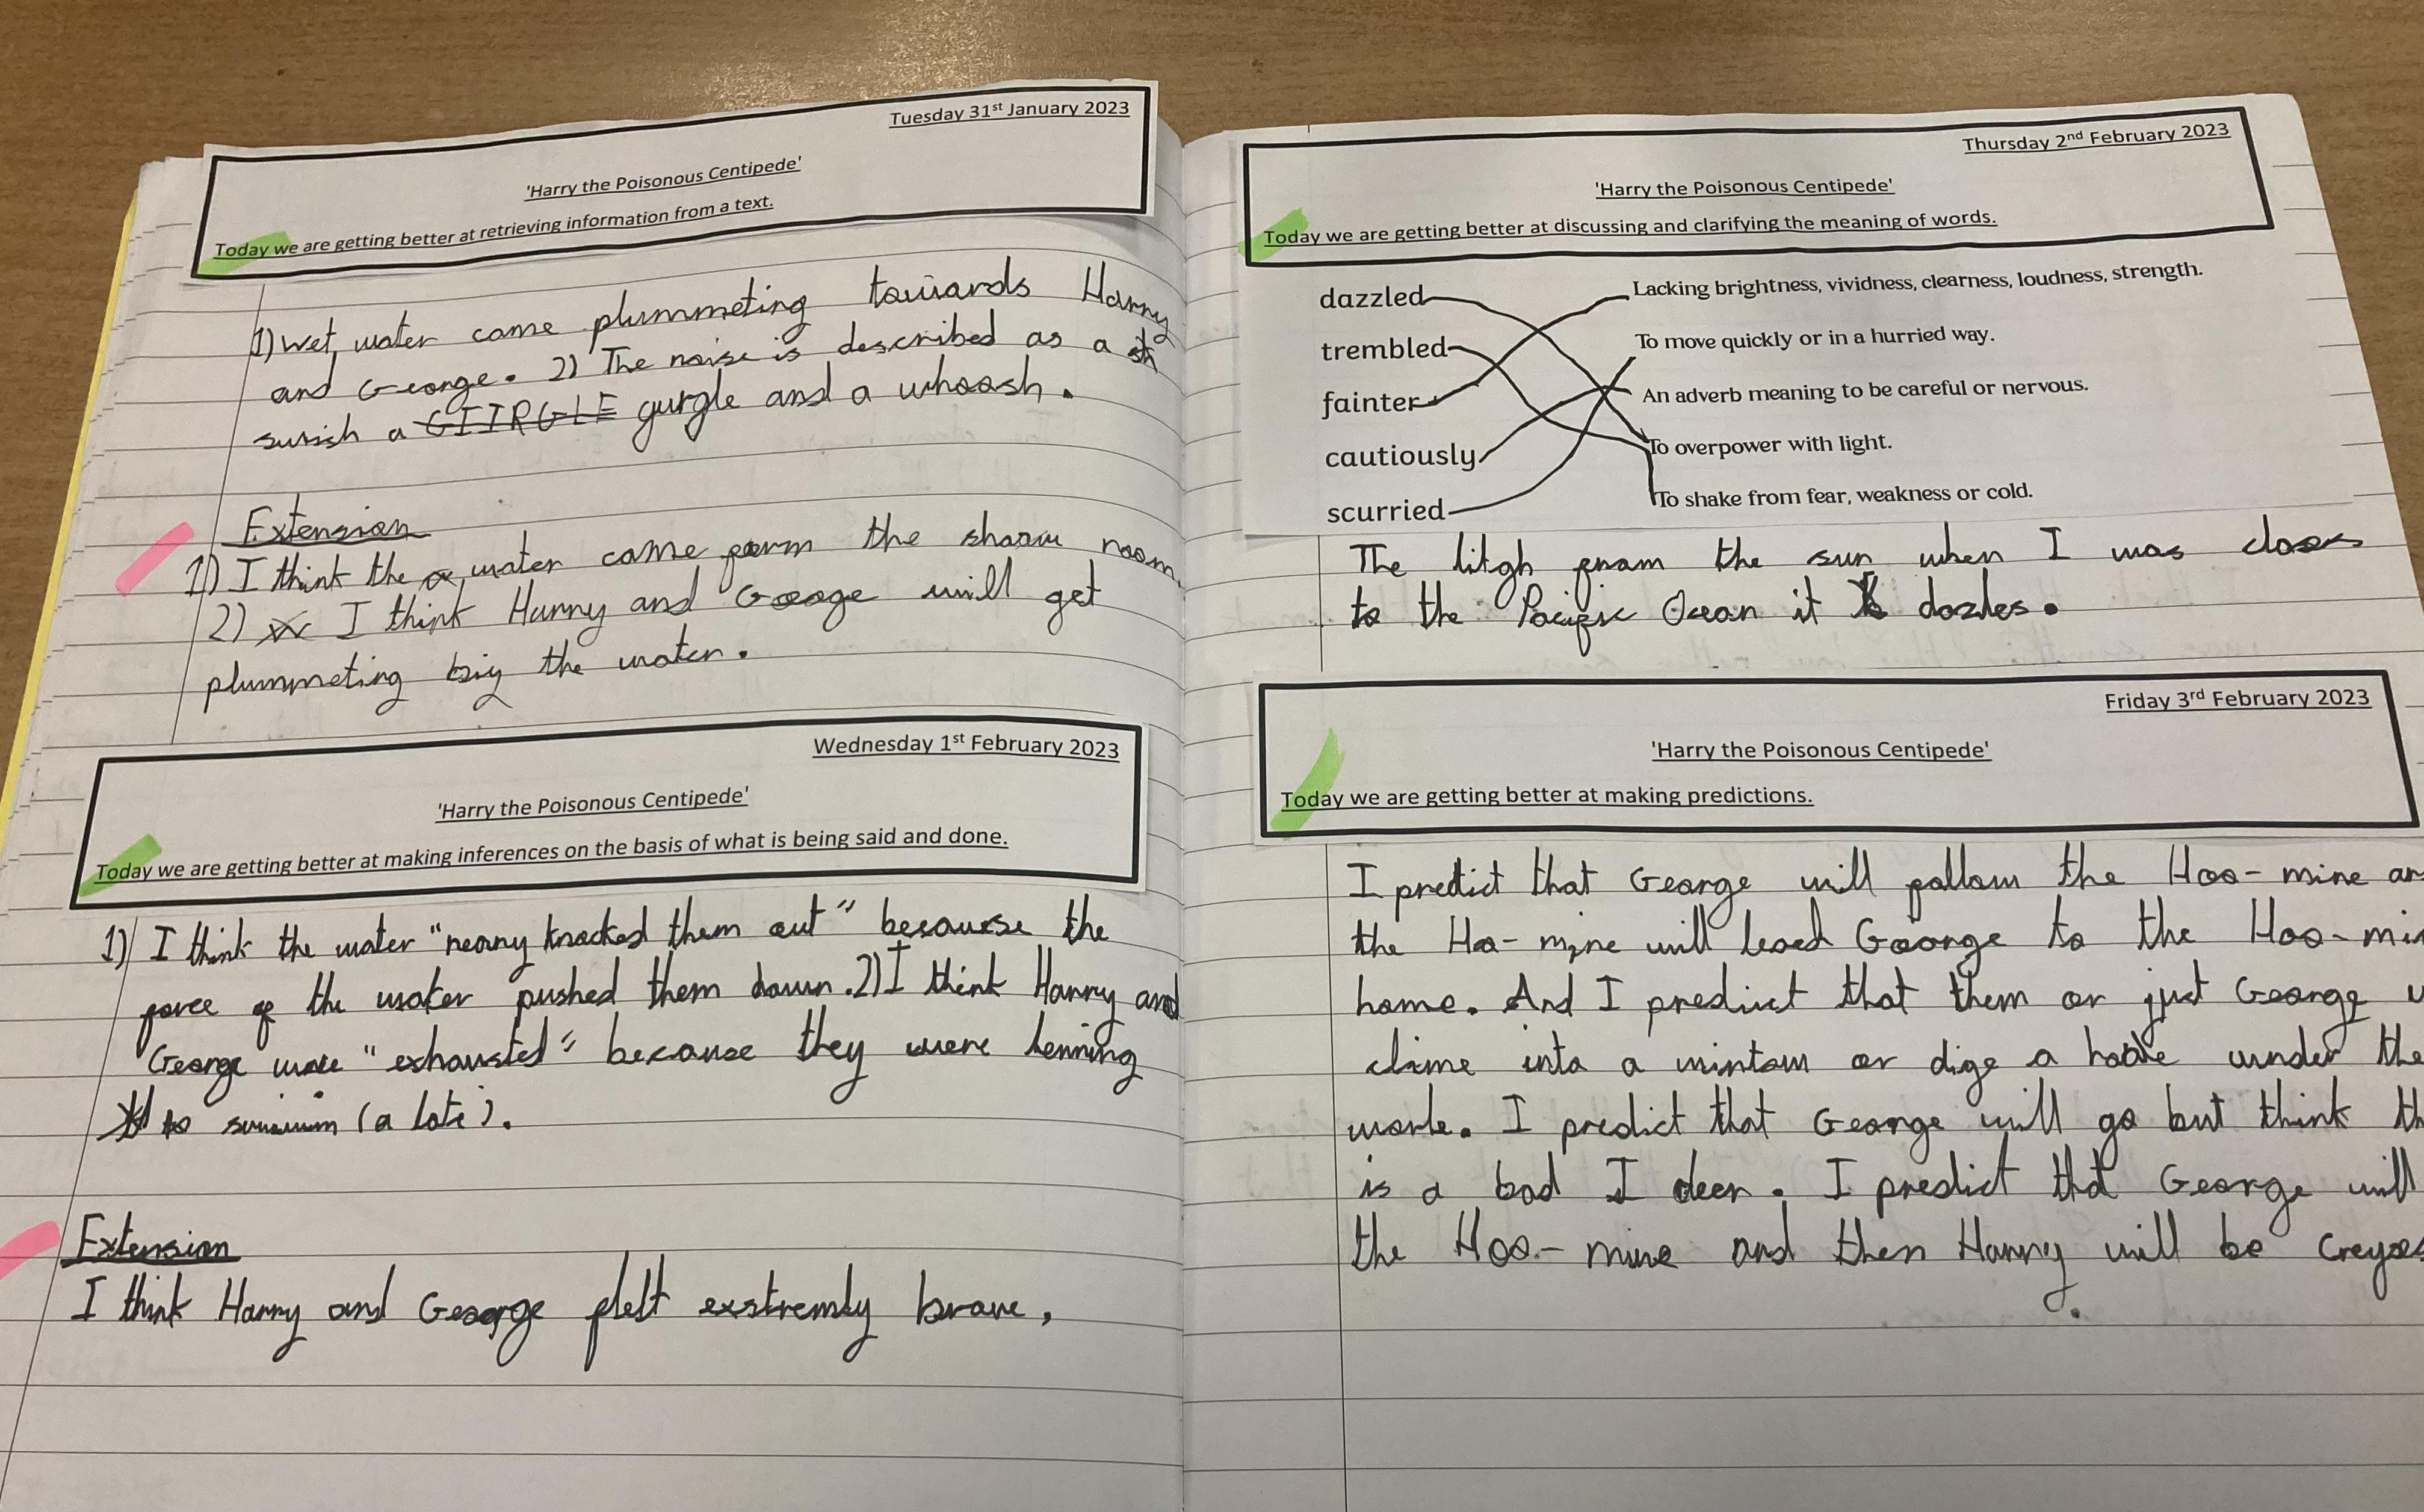 Tuesday 31st January 2023
'Harry the Poisonous Centipede'
Today we are getting better at retrieving information from a text.
1) Wet water came plummeting towards Harry
and George. 2) The noise is described as a
swish a GURGLE gurgle and a whoosh.
Extension
1) I think the water came form the shown room.
2) I think Harry and George will get
plummeting biy the water.
Wednesday 1st February 2023
'Harry the Poisonous Centipede'
Today we are getting better at making inferences on the basis of what is being said and done.
1) I think the water "neary knocked them out" becaurse the
force of the water pushed them down. 2) I think Harry and
George were "exhausted" because they were
to swimim (a lote).
Extension
I think Harry and George felt exstremly brave,
Thursday 2nd February 2023
'Harry the Poisonous Centipede'
Today we are getting better at discussing and clarifying the meaning of words.
dazzled Lacking brightness, vividness, clearness, loudness, strength.
trembled To move quickly or in a hurried way.
fainter An adverb meaning to be careful or nervous.
cautiously To overpower with light.
scurried To shake from fear, weakness or cold.
The litgh fram the sun when I was
to the Pacific Ocean it dazles.
Friday 3rd February 2023
'Harry the Poisonous Centipede'
Today we are getting better at making predictions.
I predict that George will follow the Hoo-mine
the Hoo-mine will lead George to the
home. And I prediuct that them or just George
clime into a or dige a under the
I predict that George will go but think
is a bad I deer. I predict that George will
the Hoo-mine and then Harry will be